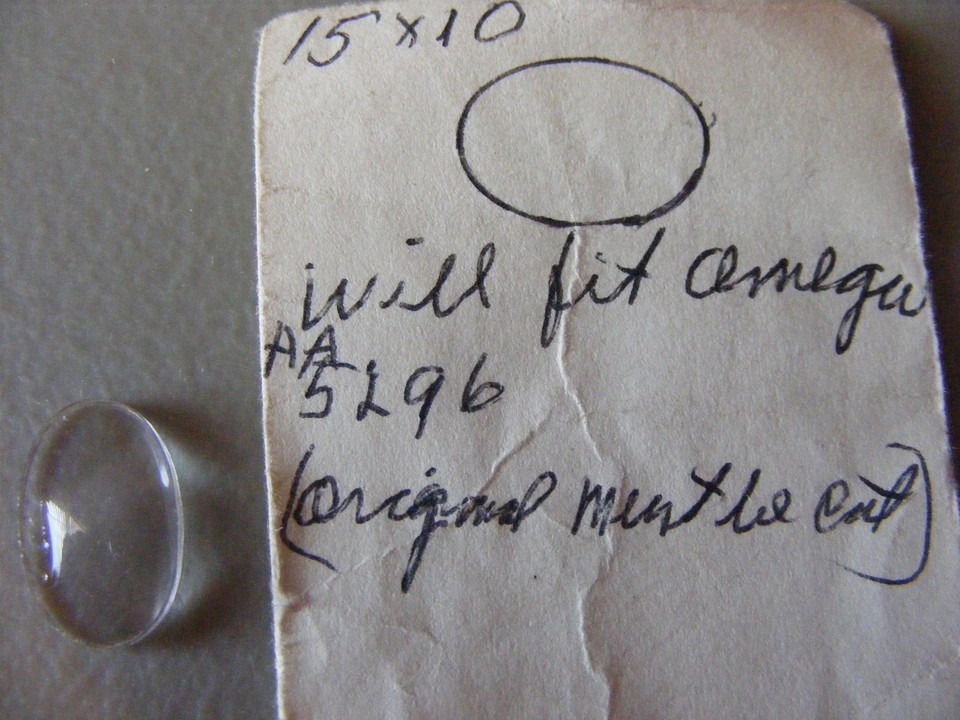 15x10
will fit Omega
AA
5296
(original must be cut)